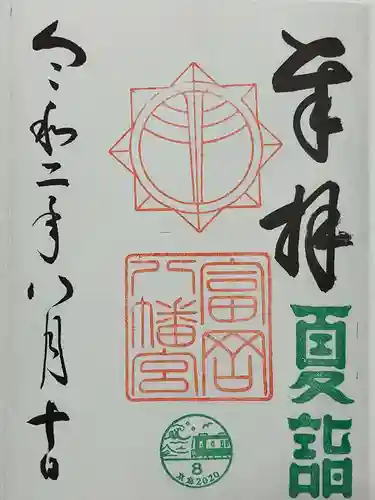 奉拝
夏詣
富岡
八幡宮
8
東京2020
令和二年八月十日